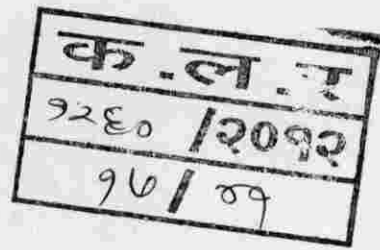 क.ल.र
१२६० /२०१२
१७/ ४१